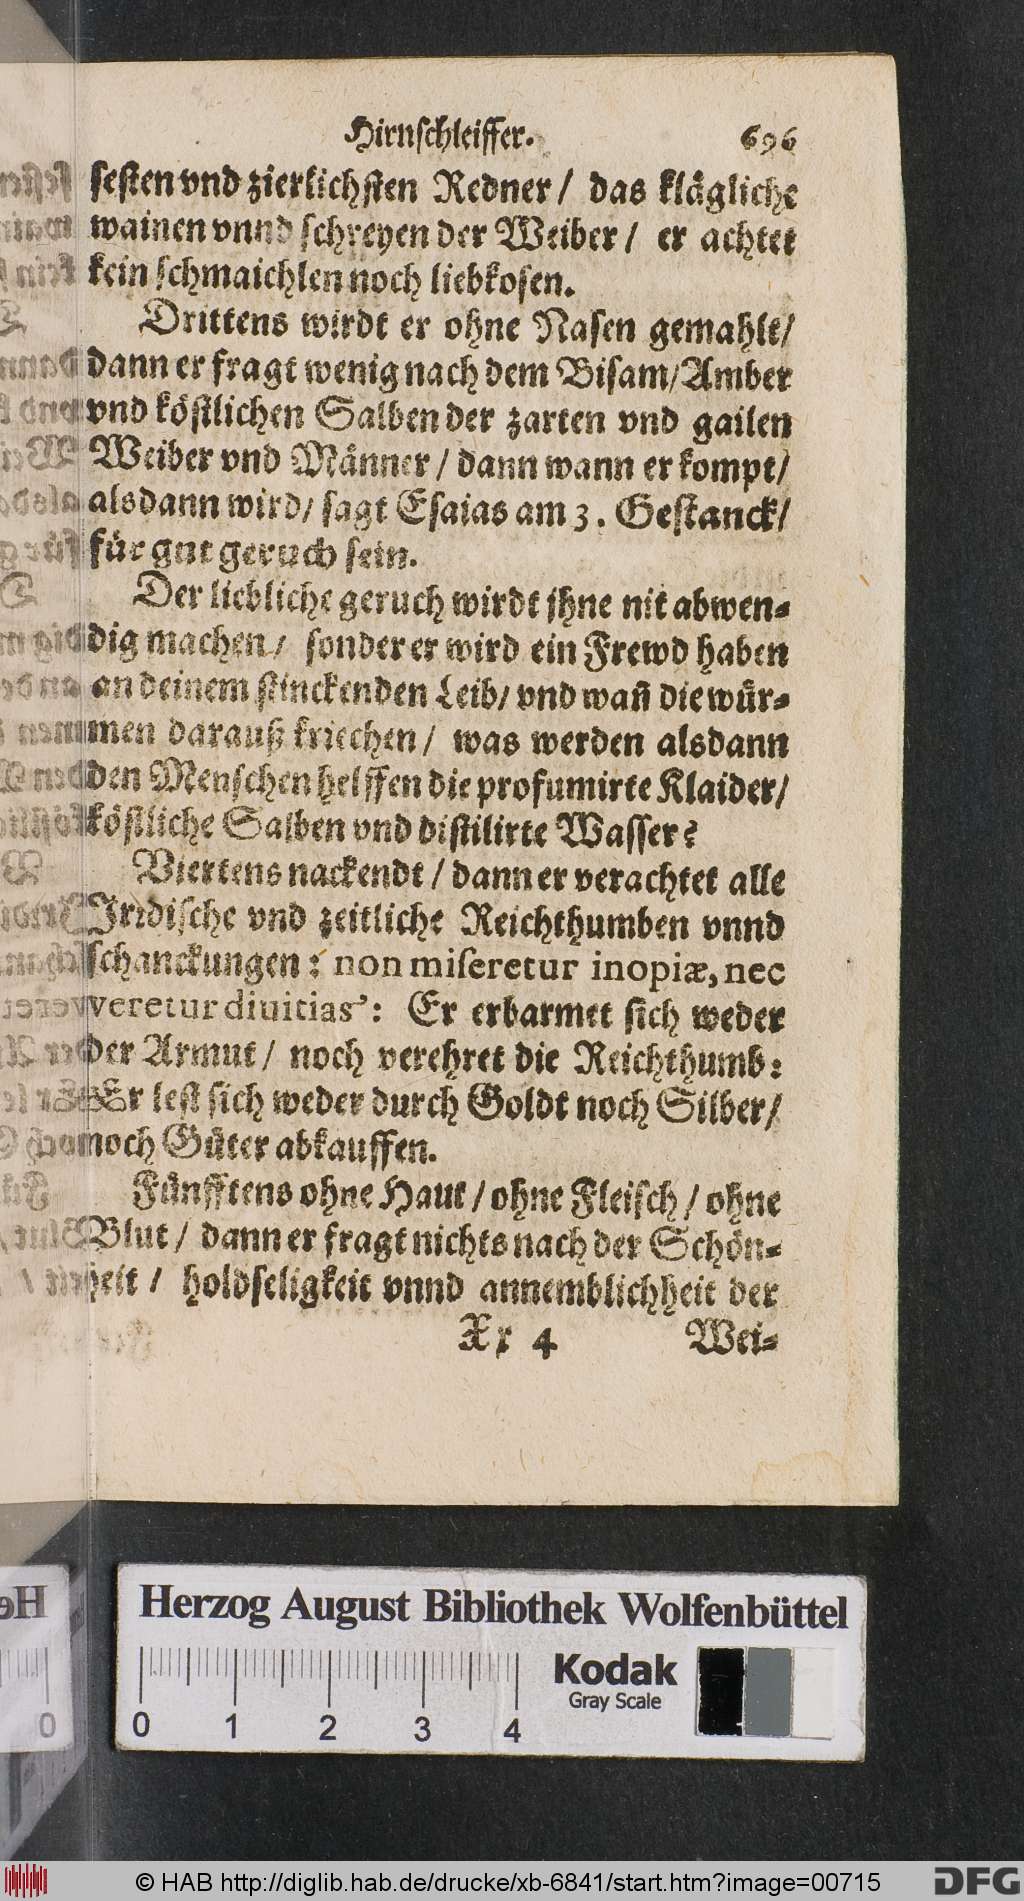 Hirnſchleiffer. 696
ſeſten vnd zierlichſten Redner / das klägliche
wainen vnnd ſchreyen der Weiber / er achtet
kein ſchmaichlen noch liebkoſen.
Drittens wirdt er ohne Naſen gemahlt /
dann er fragt wenig nach dem Biſam / Amber
vnd köſtlichen Salben der zarten vnd gailen
Weiber vnd Männer / dann wann er kompt /
alsdann wird / ſagt Eſaias am 3. Geſtanck /
für gut geruch ſein.
Der liebliche geruch wirdt jhne nit abwen-
dig machen / ſonder er wird ein Frewd haben
an deinem ſtinckenden Leib / vnd wañ die wür-
men darauß kriechen / was werden alsdann
den Menſchen helffen die profumirte Klaider /
köſtliche Salben vnd diſtilirte Waſſer?
Viertens nackendt / dann er verachtet alle
Irrdiſche vnd zeitliche Reichthumben vnnd
ſchanckungen: non miſeretur inopiæ, nec
veretur diuitias: Er erbarmet ſich weder
der Armut / noch verehret die Reichthumb:
Er leſt ſich weder durch Goldt noch Silber /
noch Güter abkauffen.
Fünfftens ohne Haut / ohne Fleiſch / ohne
Blut / dann er fragt nichts nach der Schön-
heit / holdſeligkeit vnnd annemblichheit der
Xx 4 Wei-
Herzog August Bibliothek Wolfenbüttel
Kodak
Gray Scale
0 1 2 3 4
© HAB http://diglib.hab.de/drucke/xb-6841/start.htm?image=00715
DFG